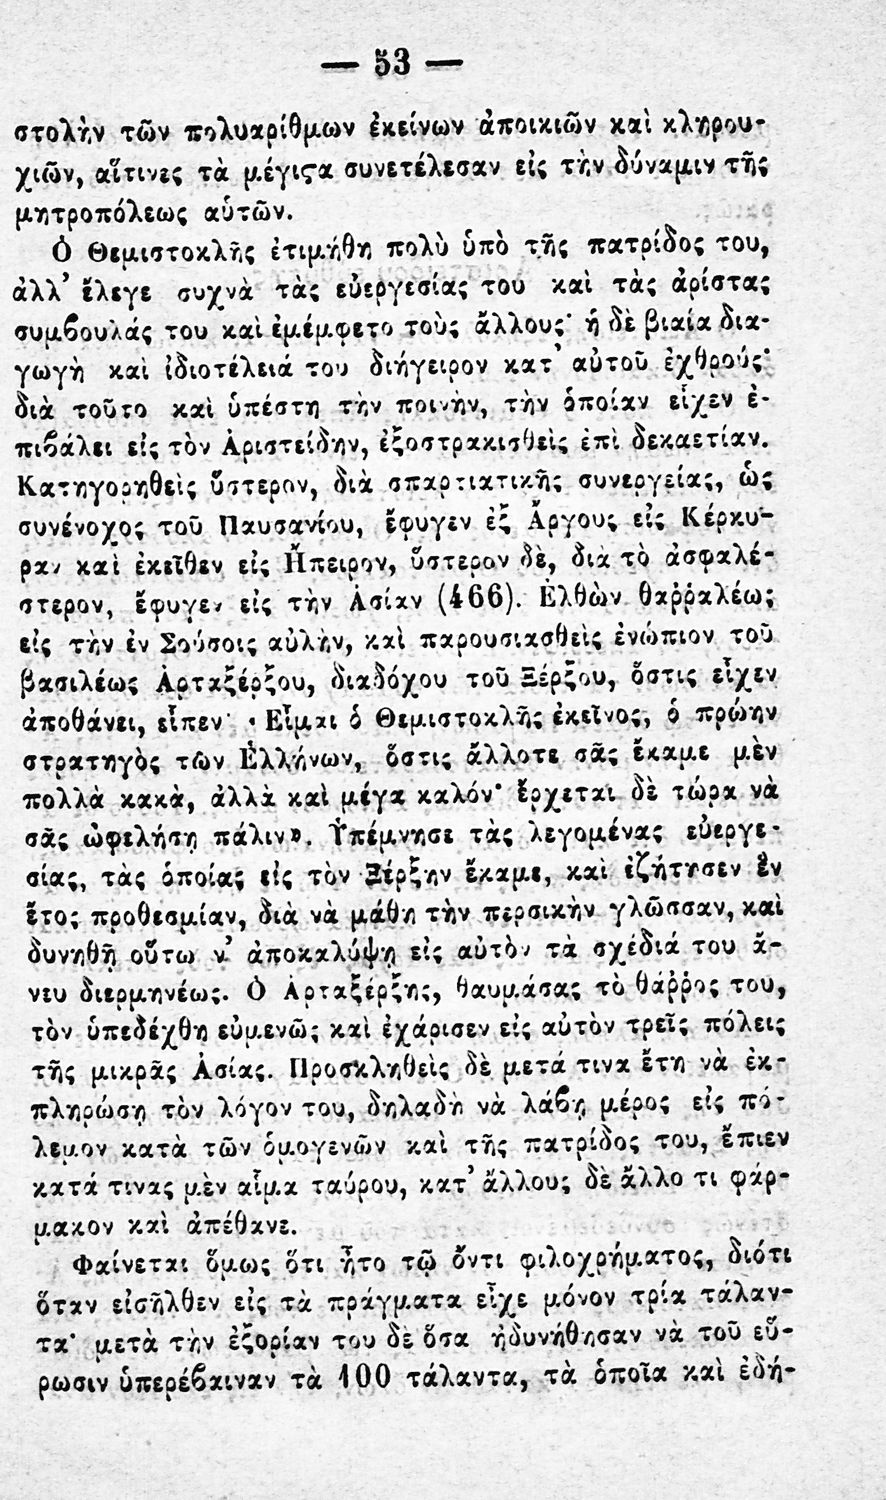 — 53 —
στολὴν τῶν πολυαρίθμων ἐκείνων ἀποικιῶν καὶ κληρου-
χιῶν, αἵτινες τὰ μέγιϛα συνετέλεσαν εἰς τὴν δύναμιν τῆς
μητροπόλεως αὑτῶν.
Ὁ Θεμιστοκλῆς ἐτιμήθη πολὺ ὑπὸ τῆς πατρίδος του,
ἀλλ’ ἔλεγε συχνὰ τὰς εὐεργεσίας του καὶ τὰς ἀρίστας
συμβουλάς του καὶ ἐμέμφετο τοὺς ἄλλους· ἡ δὲ βιαία δια-
γωγὴ καὶ ἰδιοτέλειά του διήγειρον κατ’ αὐτοῦ ἐχθρούς·
διὰ τοῦτο καὶ ὑπέστη τὴν ποινὴν, τὴν ὁποίαν εἶχεν ἐ-
πιβάλει εἰς τὸν Ἀριστείδην, ἐξοστρακισθεὶς ἐπὶ δεκαετίαν.
Κατηγορηθεὶς ὕστερον, διὰ σπαρτιατικῆς συνεργείας, ὡς
συνένοχος τοῦ Παυσανίου, ἔφυγεν ἐξ Ἄργους εἰς Κέρκυ-
ραν καὶ ἐκεῖθεν εἰς Ἤπειρον, ὕστερον δὲ, διὰ τὸ ἀσφαλέ-
στερον, ἔφυγεν εἰς τὴν Ἀσίαν (466). Ἐλθὼν θαῤῥαλέως
εἰς τὴν ἐν Σούσοις αὐλὴν, καὶ παρουσιασθεὶς ἐνώπιον τοῦ
βασιλέως Ἀρταξέρξου, διαδόχου τοῦ Ξέρξου, ὅστις εἶχεν
ἀποθάνει, εἶπεν· «Εἶμαι ὁ Θεμιστοκλῆς ἐκεῖνος, ὁ πρώην
στρατηγὸς τῶν Ἑλλήνων, ὅστις ἄλλοτε σᾶς ἔκαμε μὲν
πολλὰ κακὰ, ἀλλὰ καὶ μέγα καλόν· ἔρχεται δὲ τώρα νὰ
σᾶς ὠφελήσῃ πάλιν». Ὑπέμνησε τὰς λεγομένας εὐεργε-
σίας, τὰς ὁποίας εἰς τὸν Ξέρξην ἔκαμε, καὶ ἐζήτησεν ἓν
ἔτος προθεσμίαν, διὰ νὰ μάθῃ τὴν περσικὴν γλῶσσαν, καὶ
δυνηθῇ οὕτω ν’ ἀποκαλύψῃ εἰς αὐτὸν τὰ σχέδιά του ἄ-
νευ διερμηνέως. Ὁ Ἀρταξέρξης, θαυμάσας τὸ θάῤῥος του,
τὸν ὑπεδέχθη εὐμενῶς καὶ ἐχάρισεν εἰς αὐτὸν τρεῖς πόλεις
τῆς μικρᾶς Ἀσίας. Προσκληθεὶς δὲ μετά τινα ἔτη νὰ ἐκ-
πληρώσῃ τὸν λόγον του, δηλαδὴ νὰ λάβῃ μέρος εἰς πό-
λεμον κατὰ τῶν ὁμογενῶν καὶ τῆς πατρίδος του, ἔπιεν
κατά τινας μὲν αἷμα ταύρου, κατ’ ἄλλους δὲ ἄλλο τι φάρ-
μακον καὶ ἀπέθανε.
Φαίνεται ὅμως ὅτι ἦτο τῷ ὄντι φιλοχρήματος, διότι
ὅταν εἰσῆλθεν εἰς τὰ πράγματα εἶχε μόνον τρία τάλαν-
τα· μετὰ τὴν ἐξορίαν του δὲ ὅσα ἠδυνήθησαν νὰ τοῦ εὕ-
ρωσιν ὑπερέβαιναν τὰ 100 τάλαντα, τὰ ὁποῖα καὶ ἐδή-